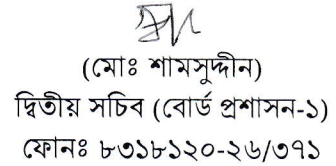 (মোঃ শামসুদ্দীন)
দ্বিতীয় সচিব (বোর্ড প্রশাসন-১)
ফোনঃ ৮৩১৮১২০-২৬/৩৭১